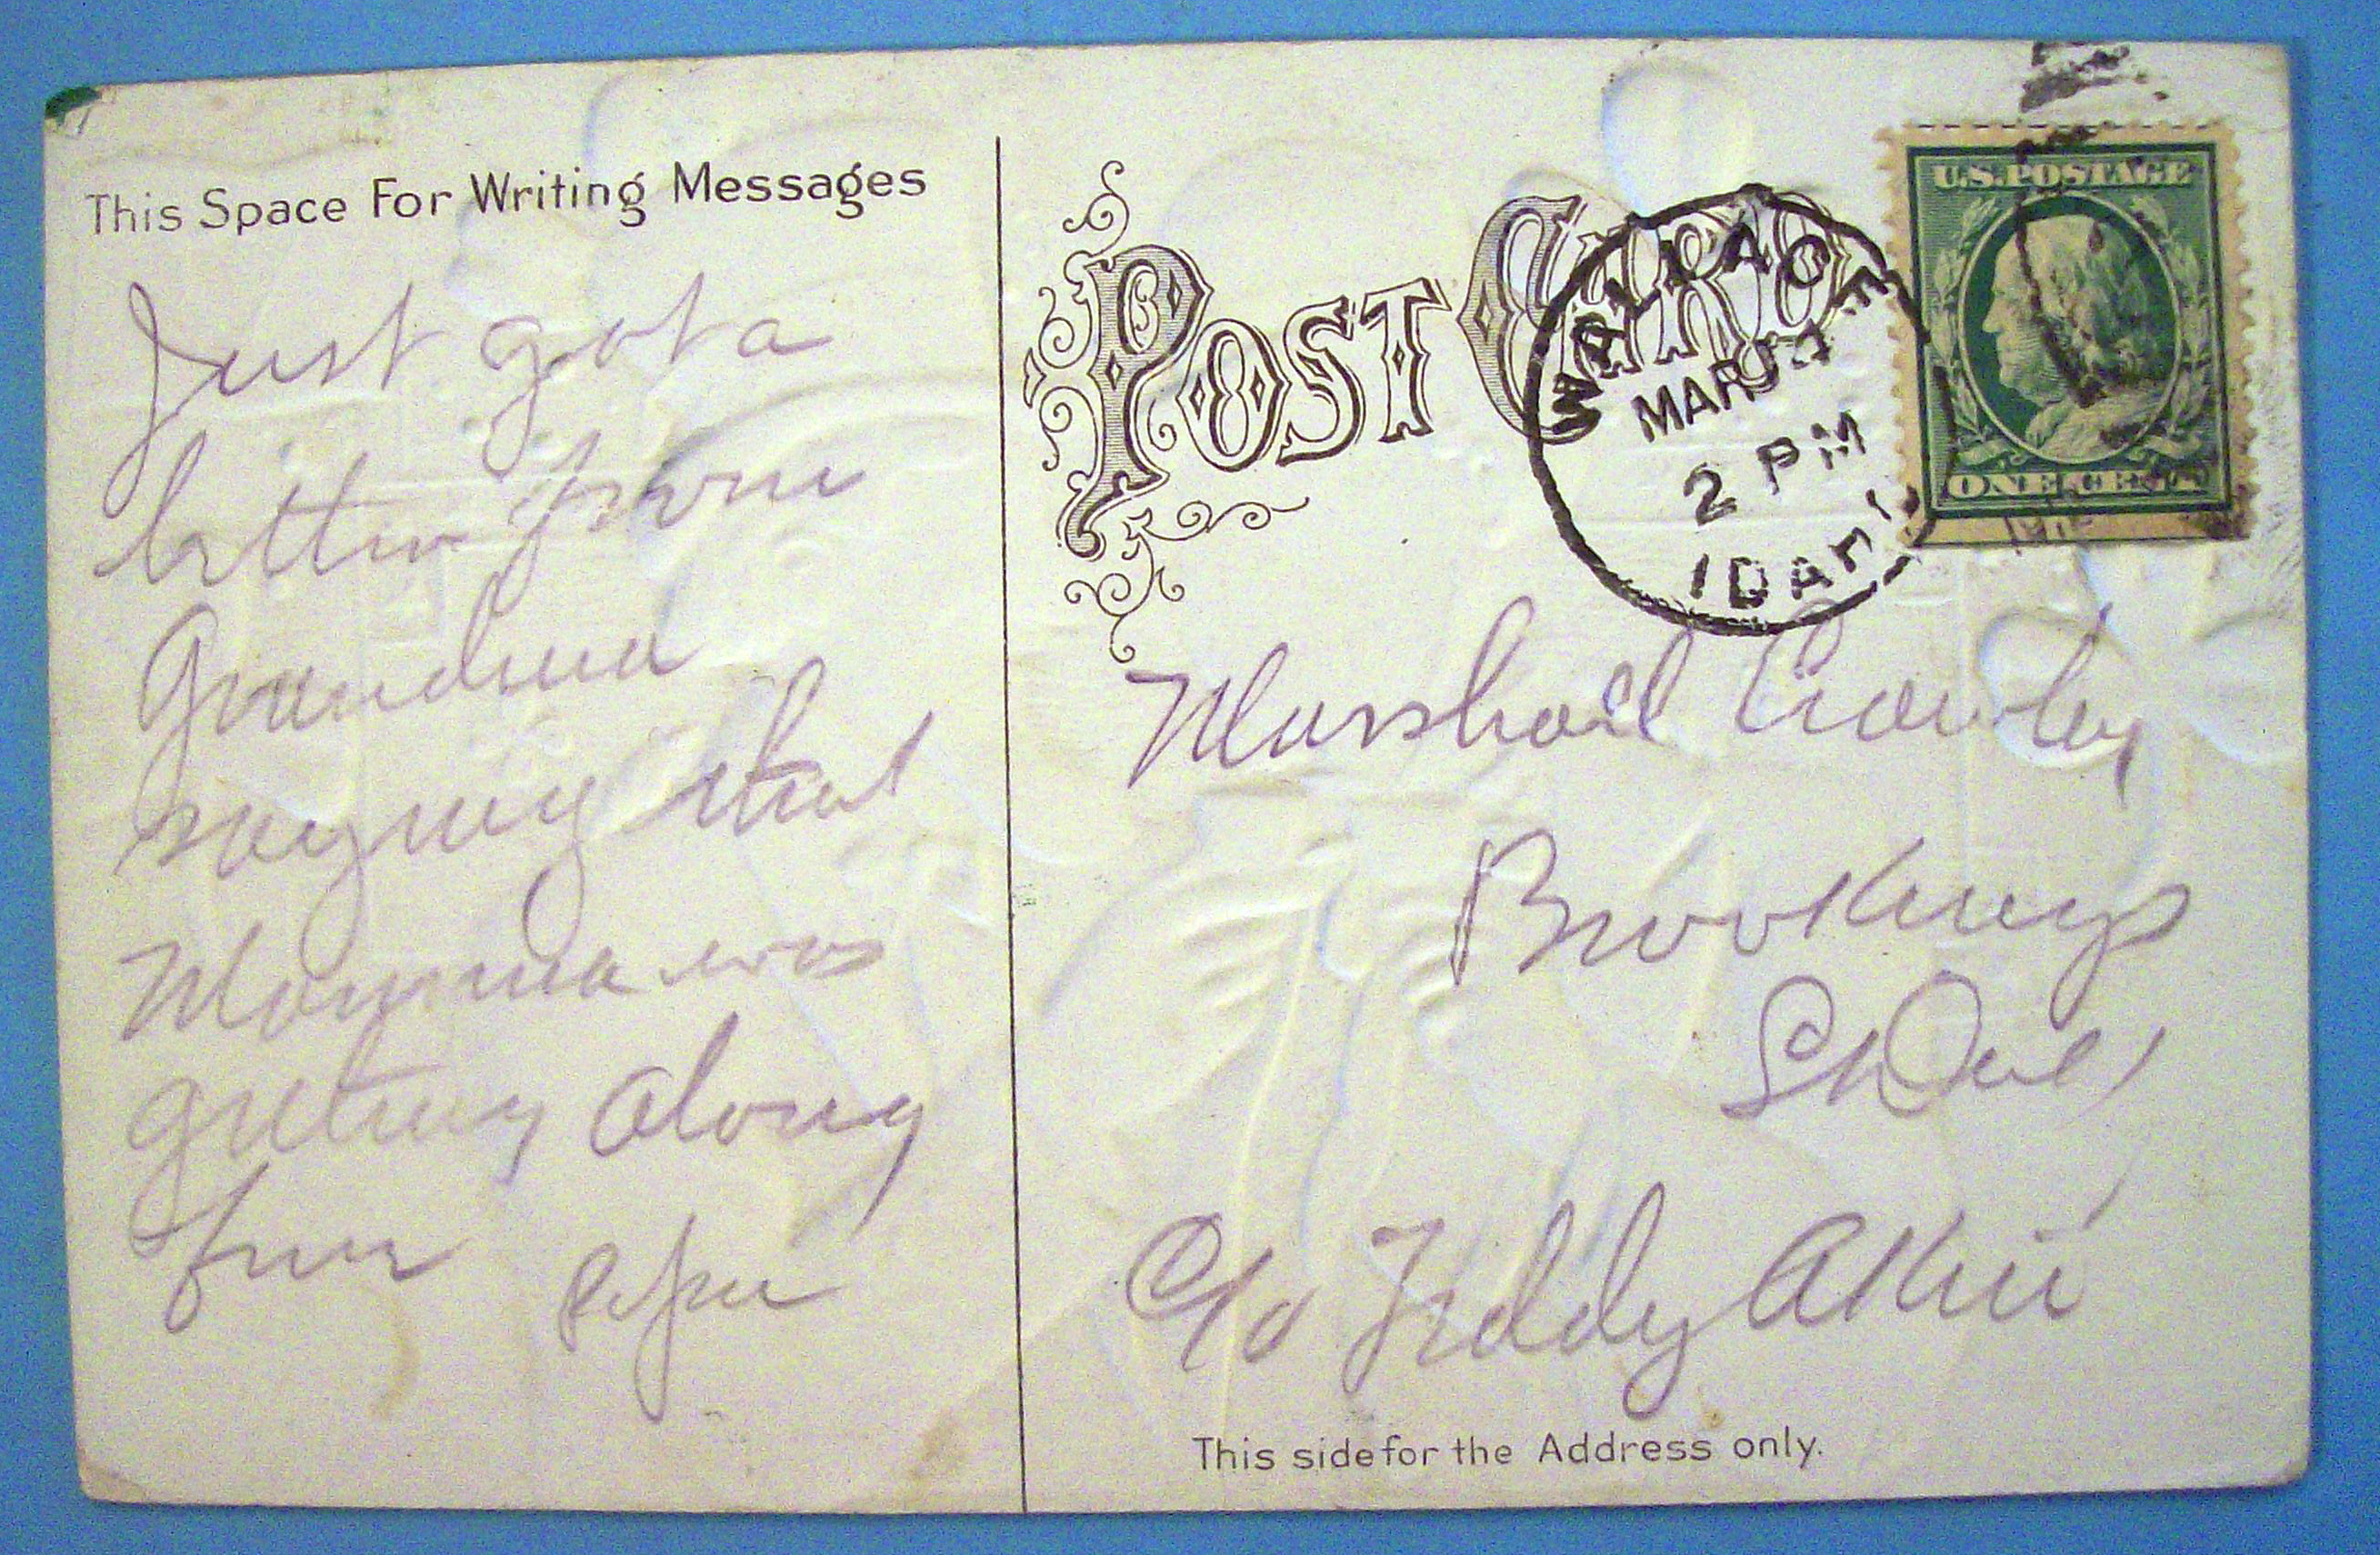 This Space For Writing Messages
Just got a
letter from
Grandma
saying that
Mamma was
getting along
fine
POST CARD
WALLACE
MAR
2 PM
IDAHO
U.S. POSTAGE
ONE CENT
Marshall Crowley
Brookings
So Dak
C/o Teddy
This side for the Address only.